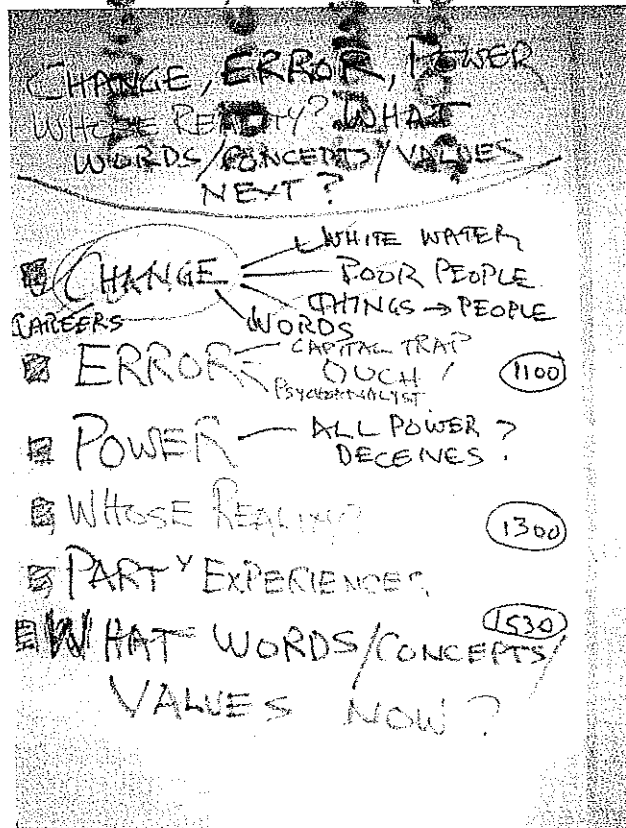 CHANGE, ERROR, POWER
WHOSE REALITY? WHAT
WORDS/CONCEPTS/VALUES
NEXT?
WHITE WATER
CHANGE
POOR PEOPLE
THINGS → PEOPLE
CAREERS
WORDS
CAPITAL TRAP
ERROR
OUCH!
1100
PSYCHOANALYST
POWER
ALL POWER ?
DECEIVES
WHOSE REALITY?
1300
PARTY EXPERIENCES
1530
WHAT WORDS/CONCEPTS/
VALUES NOW?